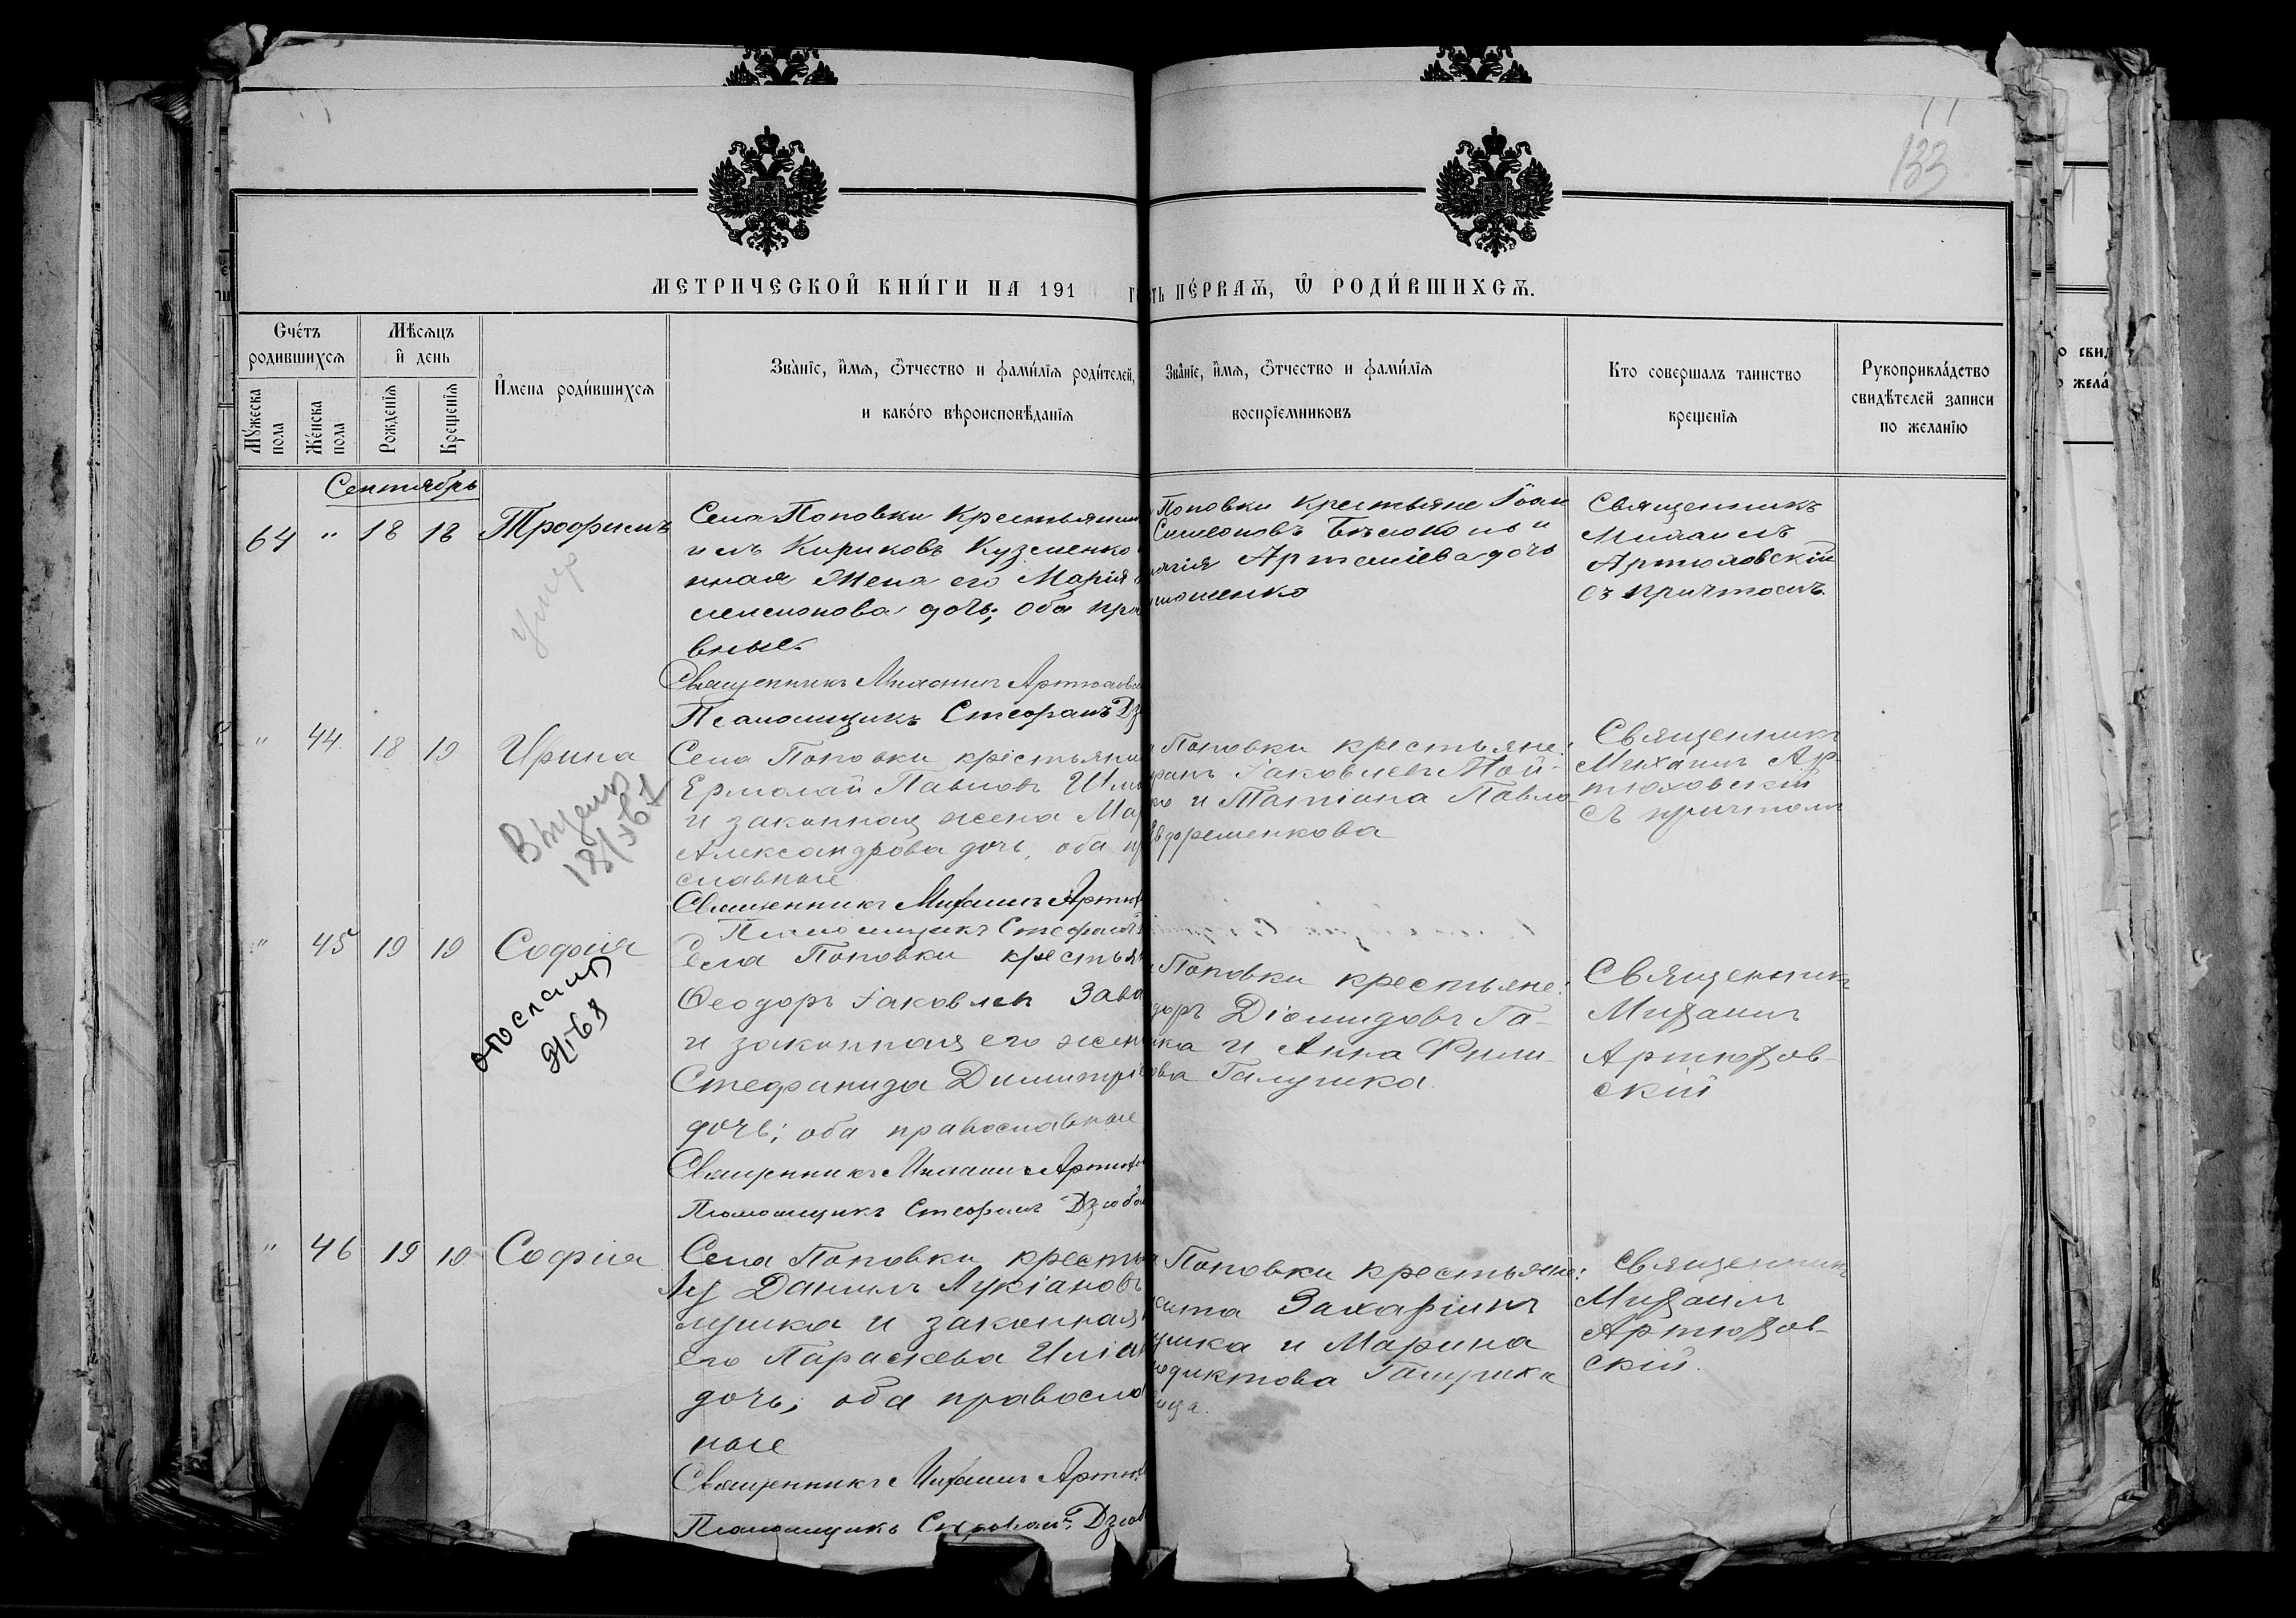 133
МЕТРИЧЕСКОЙ КНИГИ НА 191
ть ПЕРВАѦ, Ѡ РОДИВШИХСѦ.
Счетъ родившихсѧ
Мужеска пола
Женска пола
Мѣсѧцъ и день
Рожденїѧ
Крещенїѧ
Имена родившихсѧ
Званїе, имѧ, ѿчество и фамилїѧ родителей,
и какого вѣроисповѣданїѧ
Званїе, имѧ, ѿчество и фамилїѧ
воспрїемниковъ
Кто совершалъ таинство
крещенїѧ
Рукоприкладство
свидѣтелей записи
по желанїю
Сентябрь
64 " 18 18 Трофимъ
Села Поповки Крестьянин
Кириковъ Кузменко
нная жена его Марія
дочь; оба пра
вные.
Священникъ Михаилъ Артюховс
Псаломщикъ Стефанъ Дз
Поповки крестьяне Іоан
Симеоновъ Бѣлоконь и
Артеміева дочь
Священникъ
Михаилъ
Артюховскій
съ причтомъ.
умер
" 44 18 19 Ирина
Села Поповки крестьяни
Ермолай Павловъ
и законная жена Мар
Александрова дочь, оба п
славные
Священникъ Михаилъ Артюх
Псаломщикъ Стефанъ
Поповки крестьяне:
Іаковлевъ Мой-
и Татіана Павло
Священникъ
Михаилъ Ар-
тюховскій
съ причтомъ
18/
" 45 19 19 Софія
Села Поповки крестья
Ѳеодоръ Іаковлевъ Зава
и законная его жен
Стефанида Димитріе
дочь; оба православные
Священникъ Михаилъ Артюх
Псаломщикъ Стефанъ Дзюба
Поповки крестьяне:
доръ Діомидовъ Га-
ка и Анна Фили-
ова Галушка.
Священникъ
Михаилъ
Артюхов-
скій
" 46 19 19 Софія
Села Поповки кресть
Даниилъ Лукіановъ
лушка и законная
его Параскева Иліи
дочь; оба правосла
ные
Священникъ Михаилъ Артюх
Псаломщикъ Стефанъ Дзюб
Поповки крестьяне:
Захаріинъ
ушка и Марина
диктова Галушка
Священникъ
Михаилъ
Артюхов-
скій.